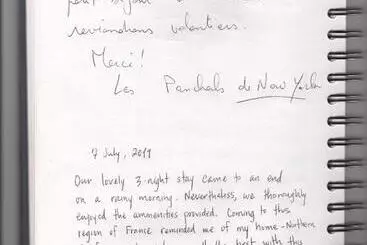 reviendrons volontiers.
Merci!
Les Panchals de New York
7 July, 2011
Our lovely 3-night stay came to an end
on a rainy morning. Nevertheless, we thoroughly
enjoyed the ammenities provided. Coming to this
region of France reminded me of my home - Northern
with this